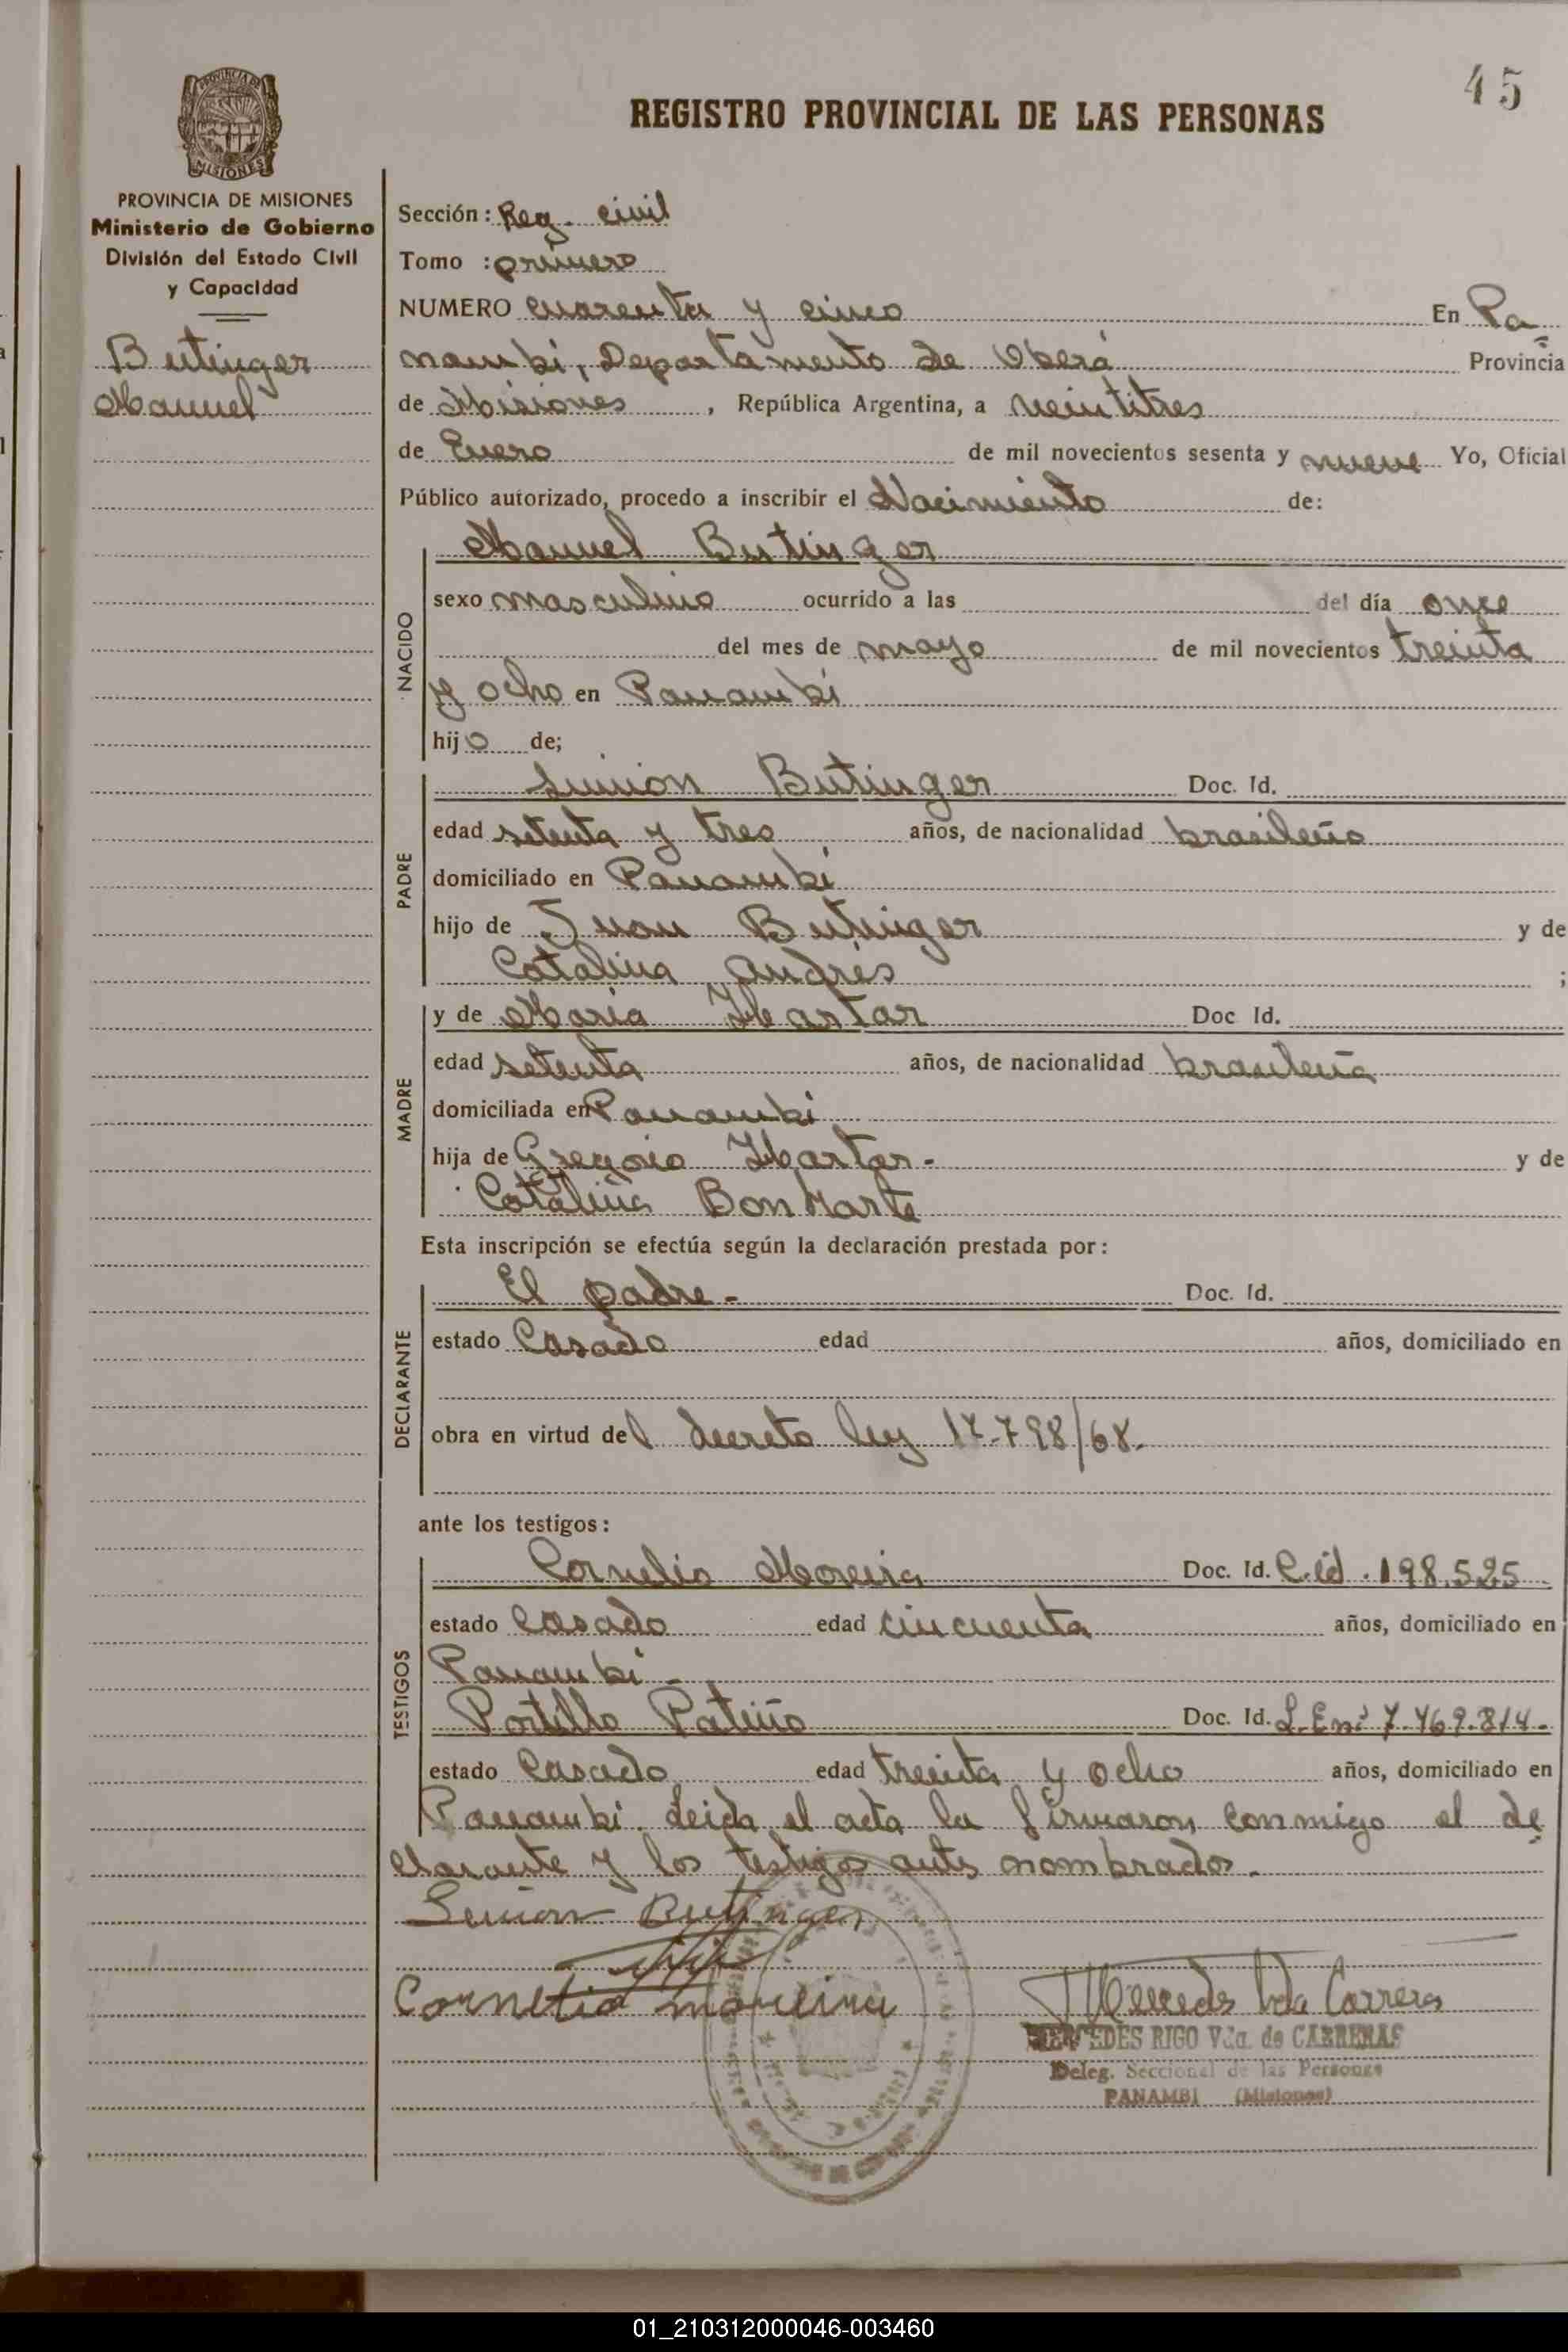 45
REGISTRO PROVINCIAL DE LAS PERSONAS
PROVINCIA DE MISIONES
MISIONES
PROVINCIA DE MISIONES
Ministerio de Gobierno
División del Estado Civil
y Capacidad
Butinger
Manuel
Sección: Reg. civil
Tomo : primero
NUMERO cuarenta y cinco En Pa
nambi, Departamento de Oberá Provincia
de Misiones , República Argentina, a veintitres
de Enero de mil novecientos sesenta y nueve Yo, Oficial
Público autorizado, procedo a inscribir el Nacimiento de:
NACIDO
Manuel Butinger
sexo masculino ocurrido a las del día once
del mes de mayo de mil novecientos treinta
y ocho en Panambi
hijo de;
PADRE
Simion Butinger Doc. Id.
edad setenta y tres años, de nacionalidad brasileño
domiciliado en Panambi
hijo de Juan Butinger y de
Catalina Andres ;
MADRE
y de Maria Hartar Doc Id.
edad setenta años, de nacionalidad brasileña
domiciliada en Panambi
hija de Gregorio Hartar - y de
Catalina Bon Harte
Esta inscripción se efectúa según la declaración prestada por:
DECLARANTE
El padre - Doc. Id.
estado Casado edad años, domiciliado en
obra en virtud del decreto ley 17.798/68.
ante los testigos:
TESTIGOS
Cornelio Moreira Doc. Id. C.id. 198.525
estado Casado edad cincuenta años, domiciliado en
Panambi -
Portillo Patiño Doc. Id. L.E nº 7.469.814-
estado Casado edad treinta y ocho años, domiciliado en
Panambi. Leida el acta la firmaron conmigo el de
clarante y los testigos antes nombrados.
Simion Butinger
Cornelio moreira Mercedes Vda Carreras
MERCEDES RIGO Vda. de CARRERAS
Deleg. Seccional de las Personas
PANAMBI (Misiones)
01_210312000046-003460